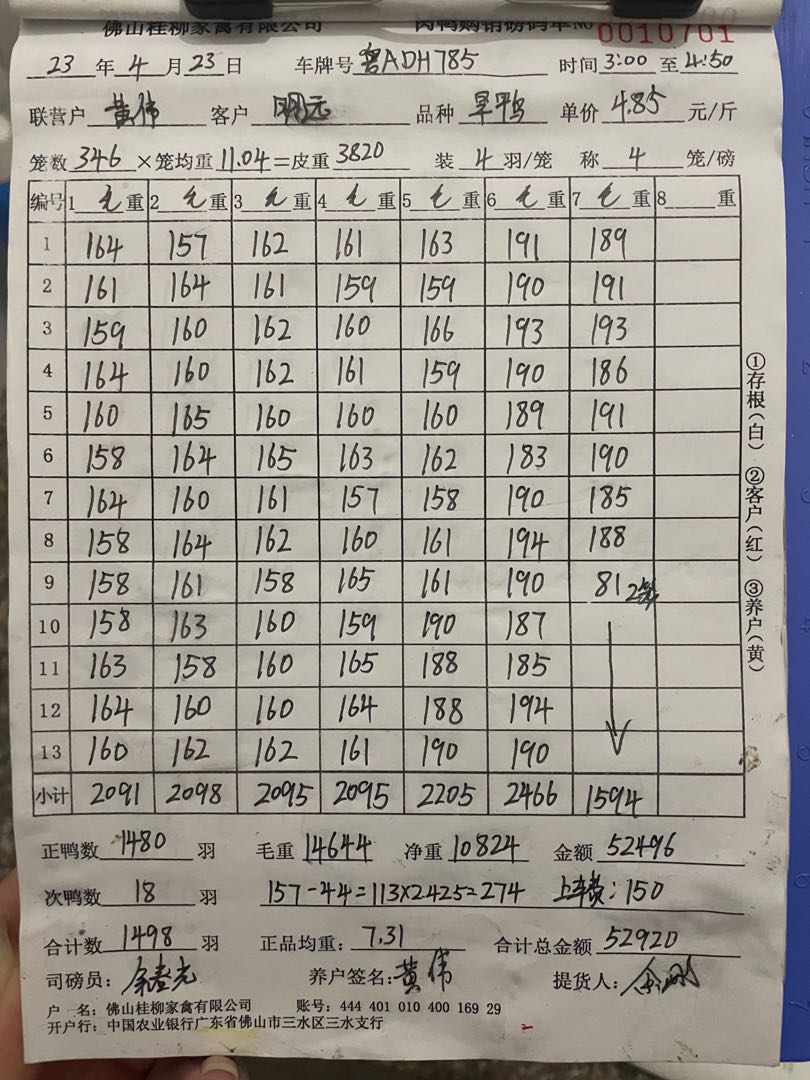 佛山桂柳家禽有限公司 肉鸭购销磅码单NO 0010701
23 年 4 月 23 日 车牌号 粤ADH785 时间 3:00 至 4:50
联营户 黄伟 客户 明远 品种 旱鸭 单价 4.85 元/斤
笼数 346 ×笼均重 11.04 =皮重 3820 装 4 羽/笼 称 4 笼/磅
编号 1 毛 重 2 毛 重 3 毛 重 4 毛 重 5 毛 重 6 毛 重 7 毛 重 8 重
1 164 157 162 161 163 191 189
2 161 164 161 159 159 190 191
3 159 160 162 160 166 193 193
4 164 160 162 161 159 190 186
5 160 165 160 160 160 189 191
6 158 164 165 163 162 183 190
7 164 160 161 157 158 190 185
8 158 164 162 160 161 194 188
9 158 161 158 165 161 190 81 2笼
10 158 163 160 159 190 187
11 163 158 160 165 188 185
12 164 160 160 164 188 194
13 160 162 162 161 190 190
小计 2091 2098 2095 2095 2205 2466 1594
①存根(白) ②客户(红) ③养户(黄)
正鸭数 1480 羽 毛重 14644 净重 10824 金额 52496
次鸭数 18 羽 157-44=113×2.425=274 上车费: 150
合计数 1498 羽 正品均重: 7.31 合计总金额 52920
司磅员: 养户签名: 黄伟 提货人:
户 名: 佛山桂柳家禽有限公司 账号: 444 401 010 400 169 29
开户行: 中国农业银行广东省佛山市三水区三水支行